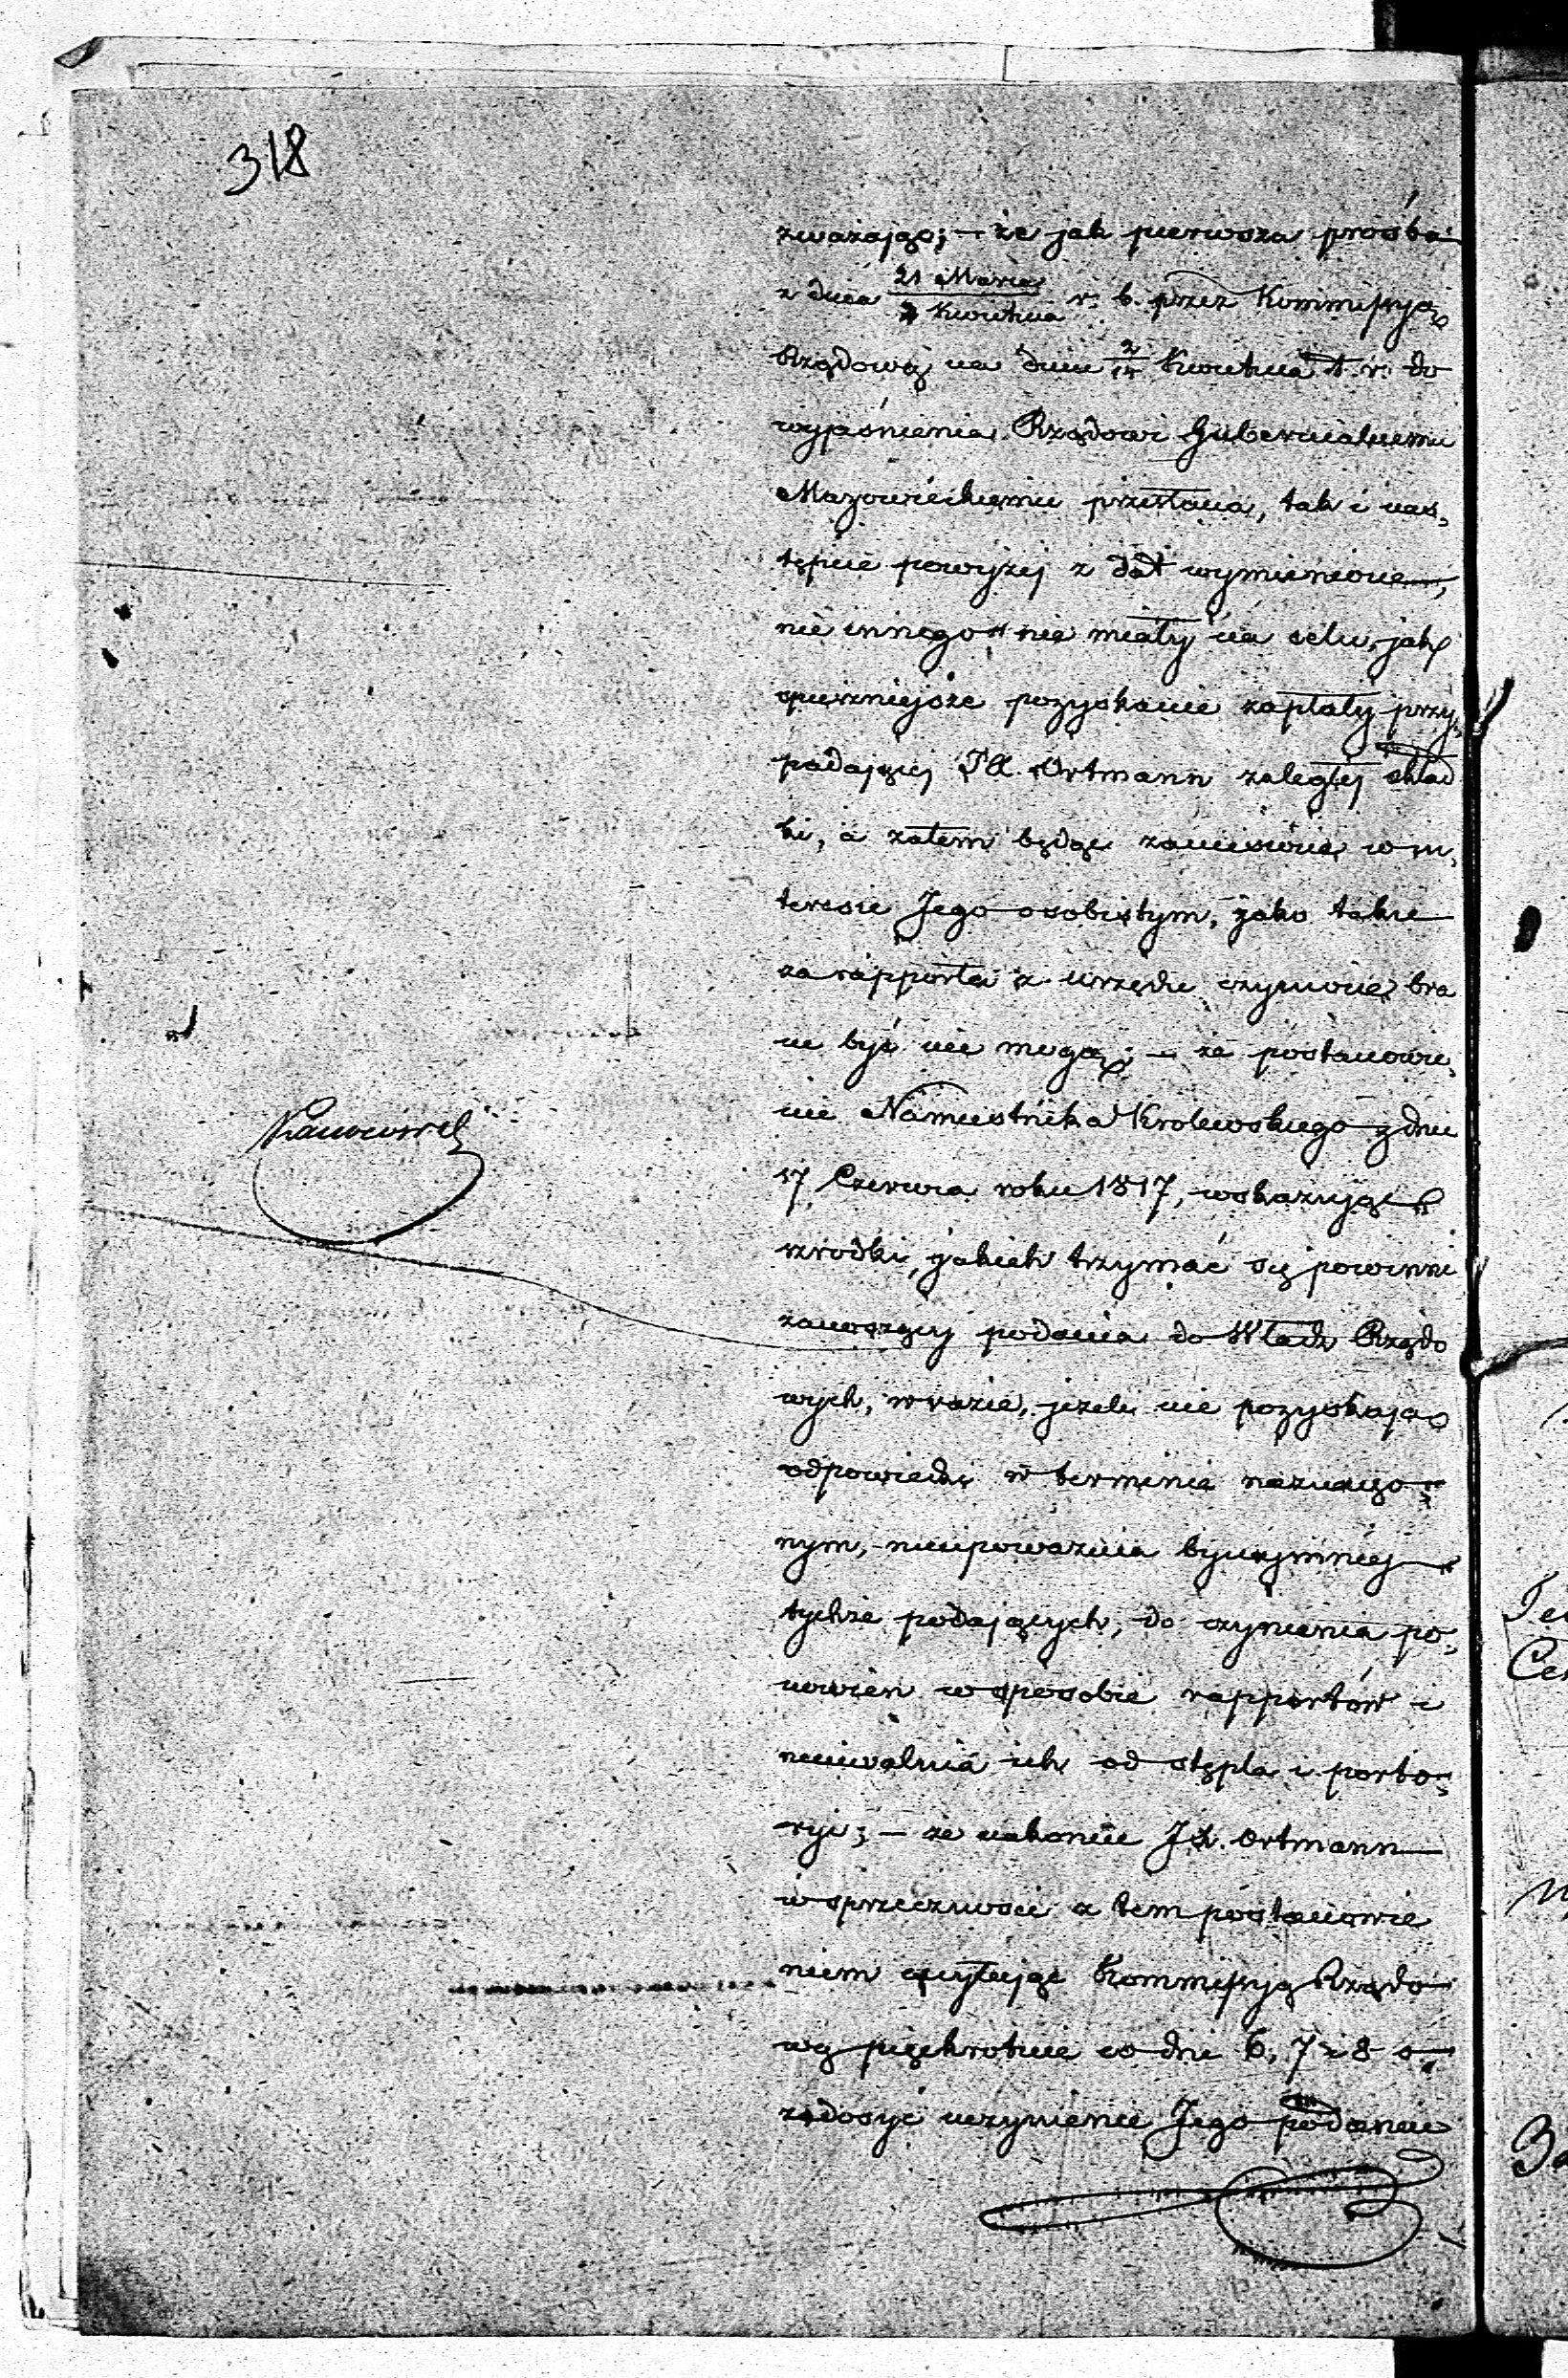 318
zważając; – że jak pierwsza prośba
z dnia 21 Marca / Kwietnia r. b. przez Kommissyą
Rządową na dniu 2/14 Kwietnia t. r. do
wyjaśnienia Rządowi Gubernialnemu
Mazowieckiemu przesłana, tak i nas,
tępne powyżej z dat wymienione,
nic innego nie miały na celu, jak
spieszniejsze pozyskanie zapłaty przy,
padającej Ortmann zaległej skład
ki, a zatem będąc zaniesione w in,
teresie Jego osobistym, jako takie
za rapporta z urzędu czynione bra
ne być nie mogą; – że postanowie,
nie Namiestnika Królewskiego z dnia
17 Czerwca roku 1817, wskazując
srzodki, jakich trzymać się powinni
zanoszący podania do Władz Rządo
wych, w razie, jeżeli nie pozyskają
odpowiedzi w terminie naznaczo-
nym, nieupoważnia bynajmniej
tychże podających, do czynienia po,
nowień w sposobie rapportów i
nieuwalnia ich od stępla i porto-
ryi; – że nakoniec Ortmann
w sprzeczności z tem postanowie
niem Kommissyą Rządo
wą pięciokrotnie co dni 6, 7 i 8 o
zadosyć uczynienie Jego podaniu